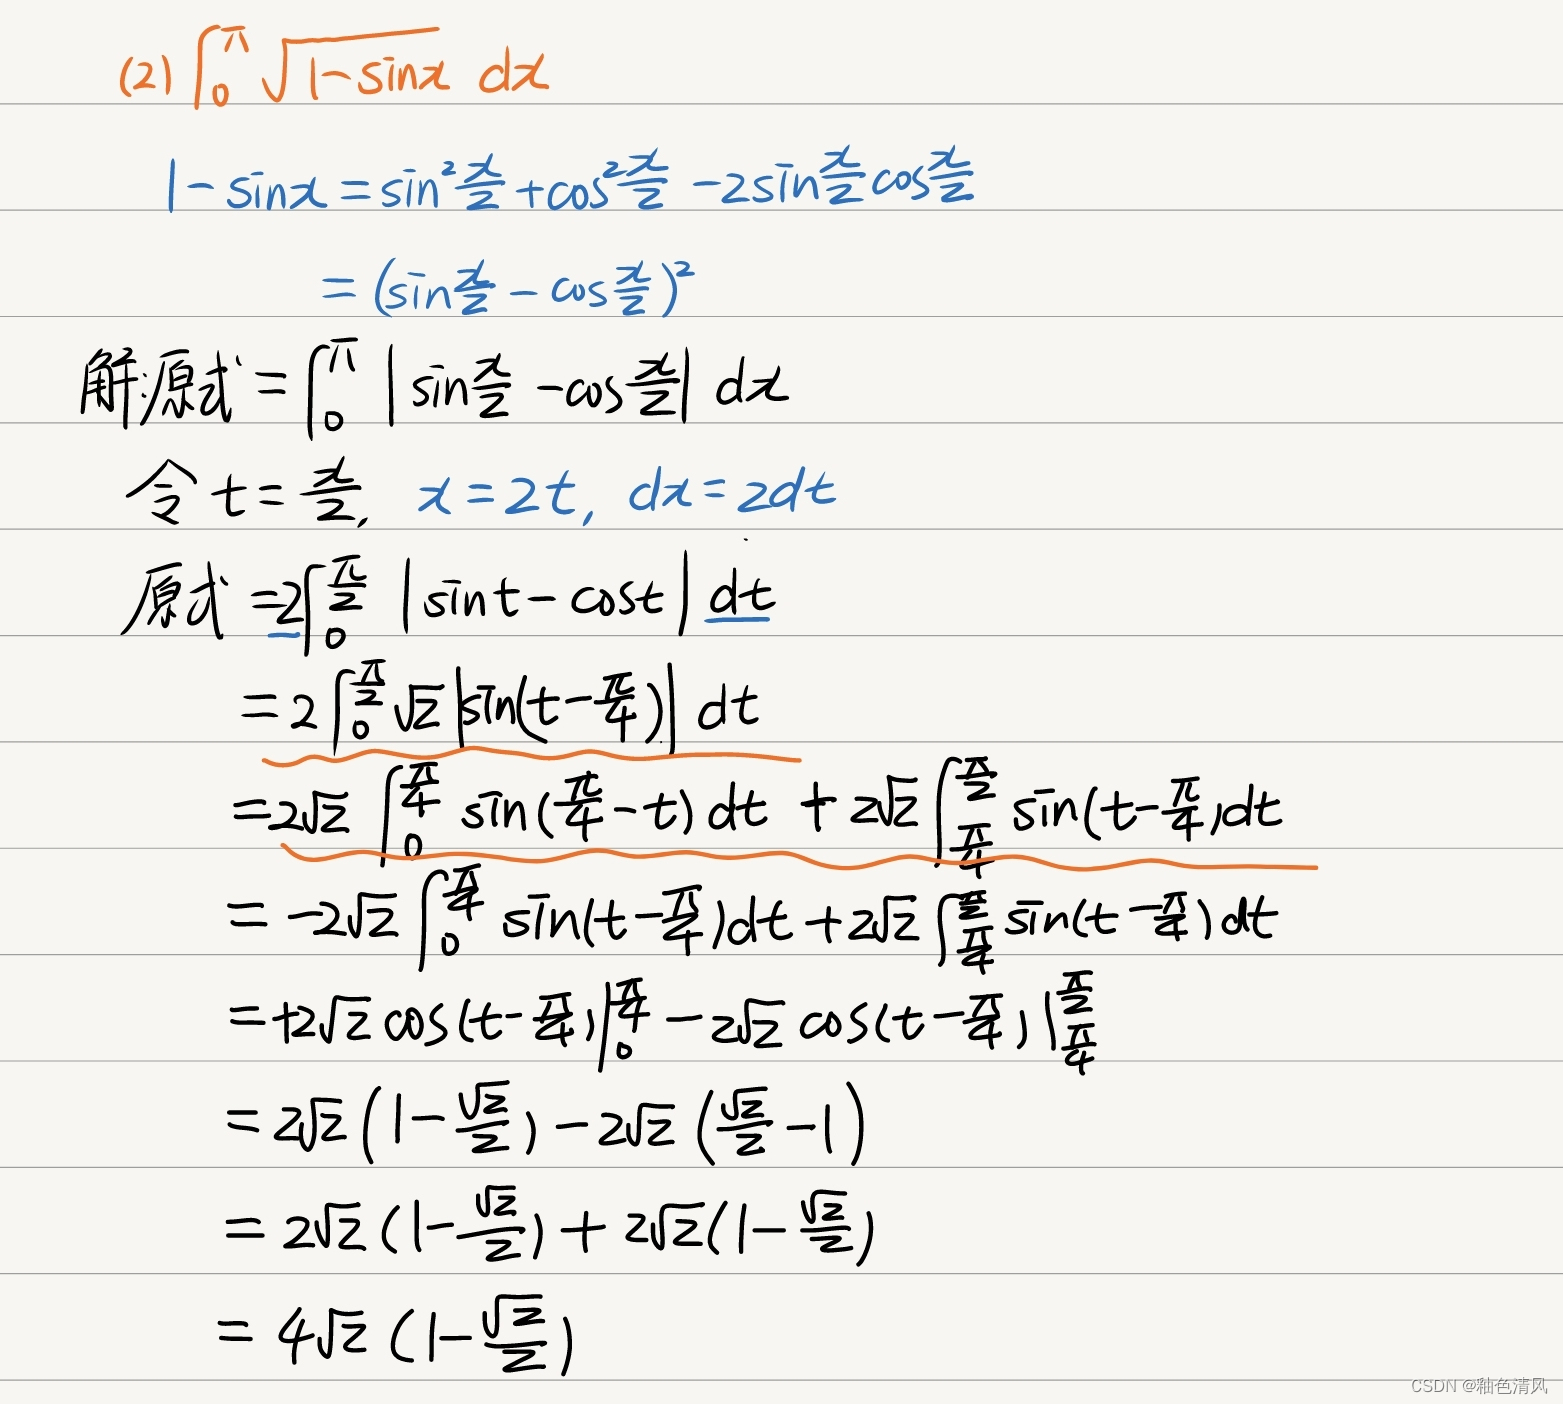 (2) ∫₀^π √(1-sinx) dx
1-sinx = sin² x/2 + cos² x/2 - 2sin x/2 cos x/2
= (sin x/2 - cos x/2)²
解:原式 = ∫₀^π |sin x/2 - cos x/2| dx
令 t = x/2, x = 2t, dx = 2dt
原式 = 2∫₀^(π/2) |sint - cost| dt
= 2∫₀^(π/2) √2 |sin(t - π/4)| dt
= 2√2 ∫₀^(π/4) sin(π/4 - t) dt + 2√2 ∫_(π/4)^(π/2) sin(t - π/4) dt
= -2√2 ∫₀^(π/4) sin(t - π/4) dt + 2√2 ∫_(π/4)^(π/2) sin(t - π/4) dt
= +2√2 cos(t - π/4) |₀^(π/4) - 2√2 cos(t - π/4) |_(π/4)^(π/2)
= 2√2 (1 - √2/2) - 2√2 (√2/2 - 1)
= 2√2 (1 - √2/2) + 2√2 (1 - √2/2)
= 4√2 (1 - √2/2)
CSDN @釉色清风